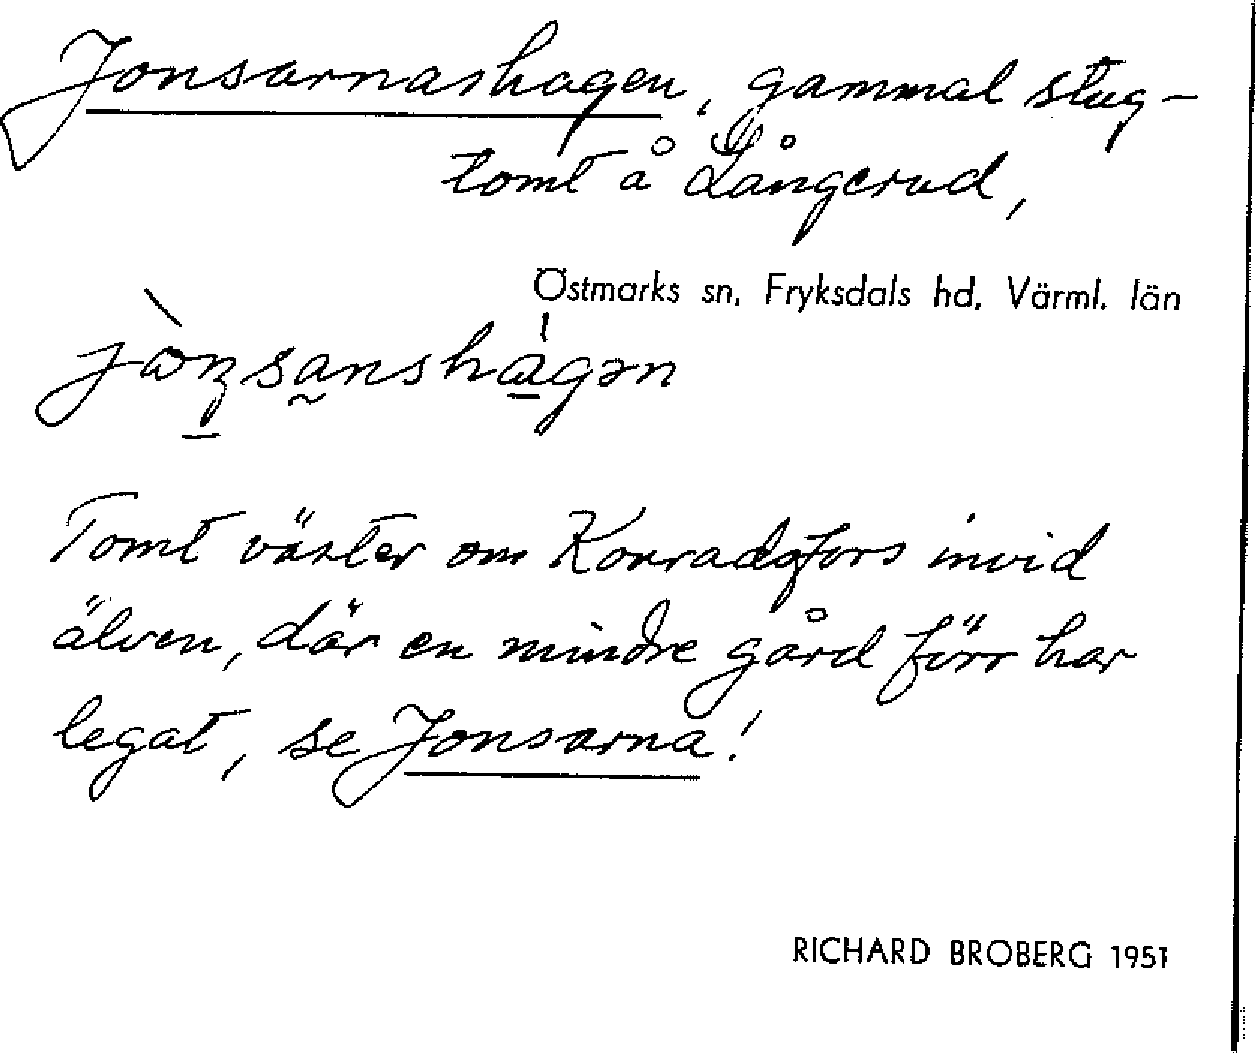 Jonsarnashagen, gammal stug-
tomt å Långerud,
Östmarks sn, Fryksdals hd, Värml. län
Tomt väster om Konradsfors invid
älven, där en mindre gård förr har
legat, se Jonsarna!
RICHARD BROBERG 1951